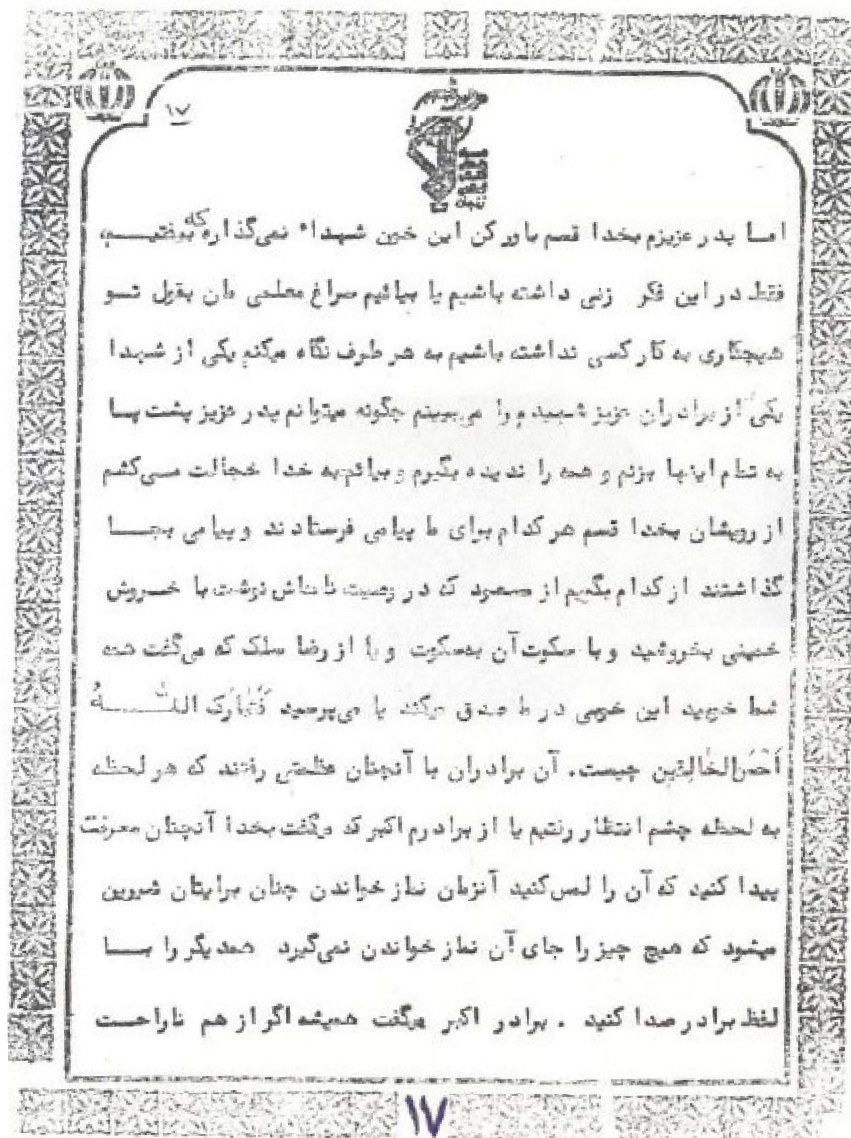 ۱۷
اما پدر عزیزم بخدا قسم باور کن این خون شهداء نمی‌گذارد که بیفتیم،
فقط در این فکر زنی داشته باشیم یا بیائیم سراغ معلمی مان بقول تو
هیچکاری به کار کسی نداشته باشیم به هر طرف نگاه میکنم یکی از شهدا
یکی از برادران عزیز شهیدم را می‌بینم چگونه میتوانم پدر عزیز پشت پا
به تمام اینها بزنم و همه را ندیده بگیرم و بیائم به خدا خجالت می‌کشم
از رویشان بخدا قسم هر کدام برای ما پیامی فرستادند و پیامی بجا
گذاشتند از کدام بگویم از که در وصیت نامه‌اش نوشت با خروش
خمینی بخروشید و با سکوت آن به سکوت و یا از رضا ملک که می‌گفت همه
شما خوبید این خوبی در ما صدق میکند یا می‌پرسید فَتَبارَکَ اللهُ
اَحْسَنُ‌الخالِقین چیست. آن برادران با آنچنان عظمتی رفتند که هر لحظه
به لحظه چشم انتظار رفتیم یا از برادرم اکبر که میگفت بخدا آنچنان معرفت
پیدا کنید که آن را لمس کنید آنزمان نماز خواندن چنان برایتان شیرین
میشود که هیچ چیز را جای آن نماز خواندن نمی‌گیرد همدیگر را با
لفظ برادر صدا کنید . برادر اکبر میگفت همیشه اگر از هم ناراحت
۱۷